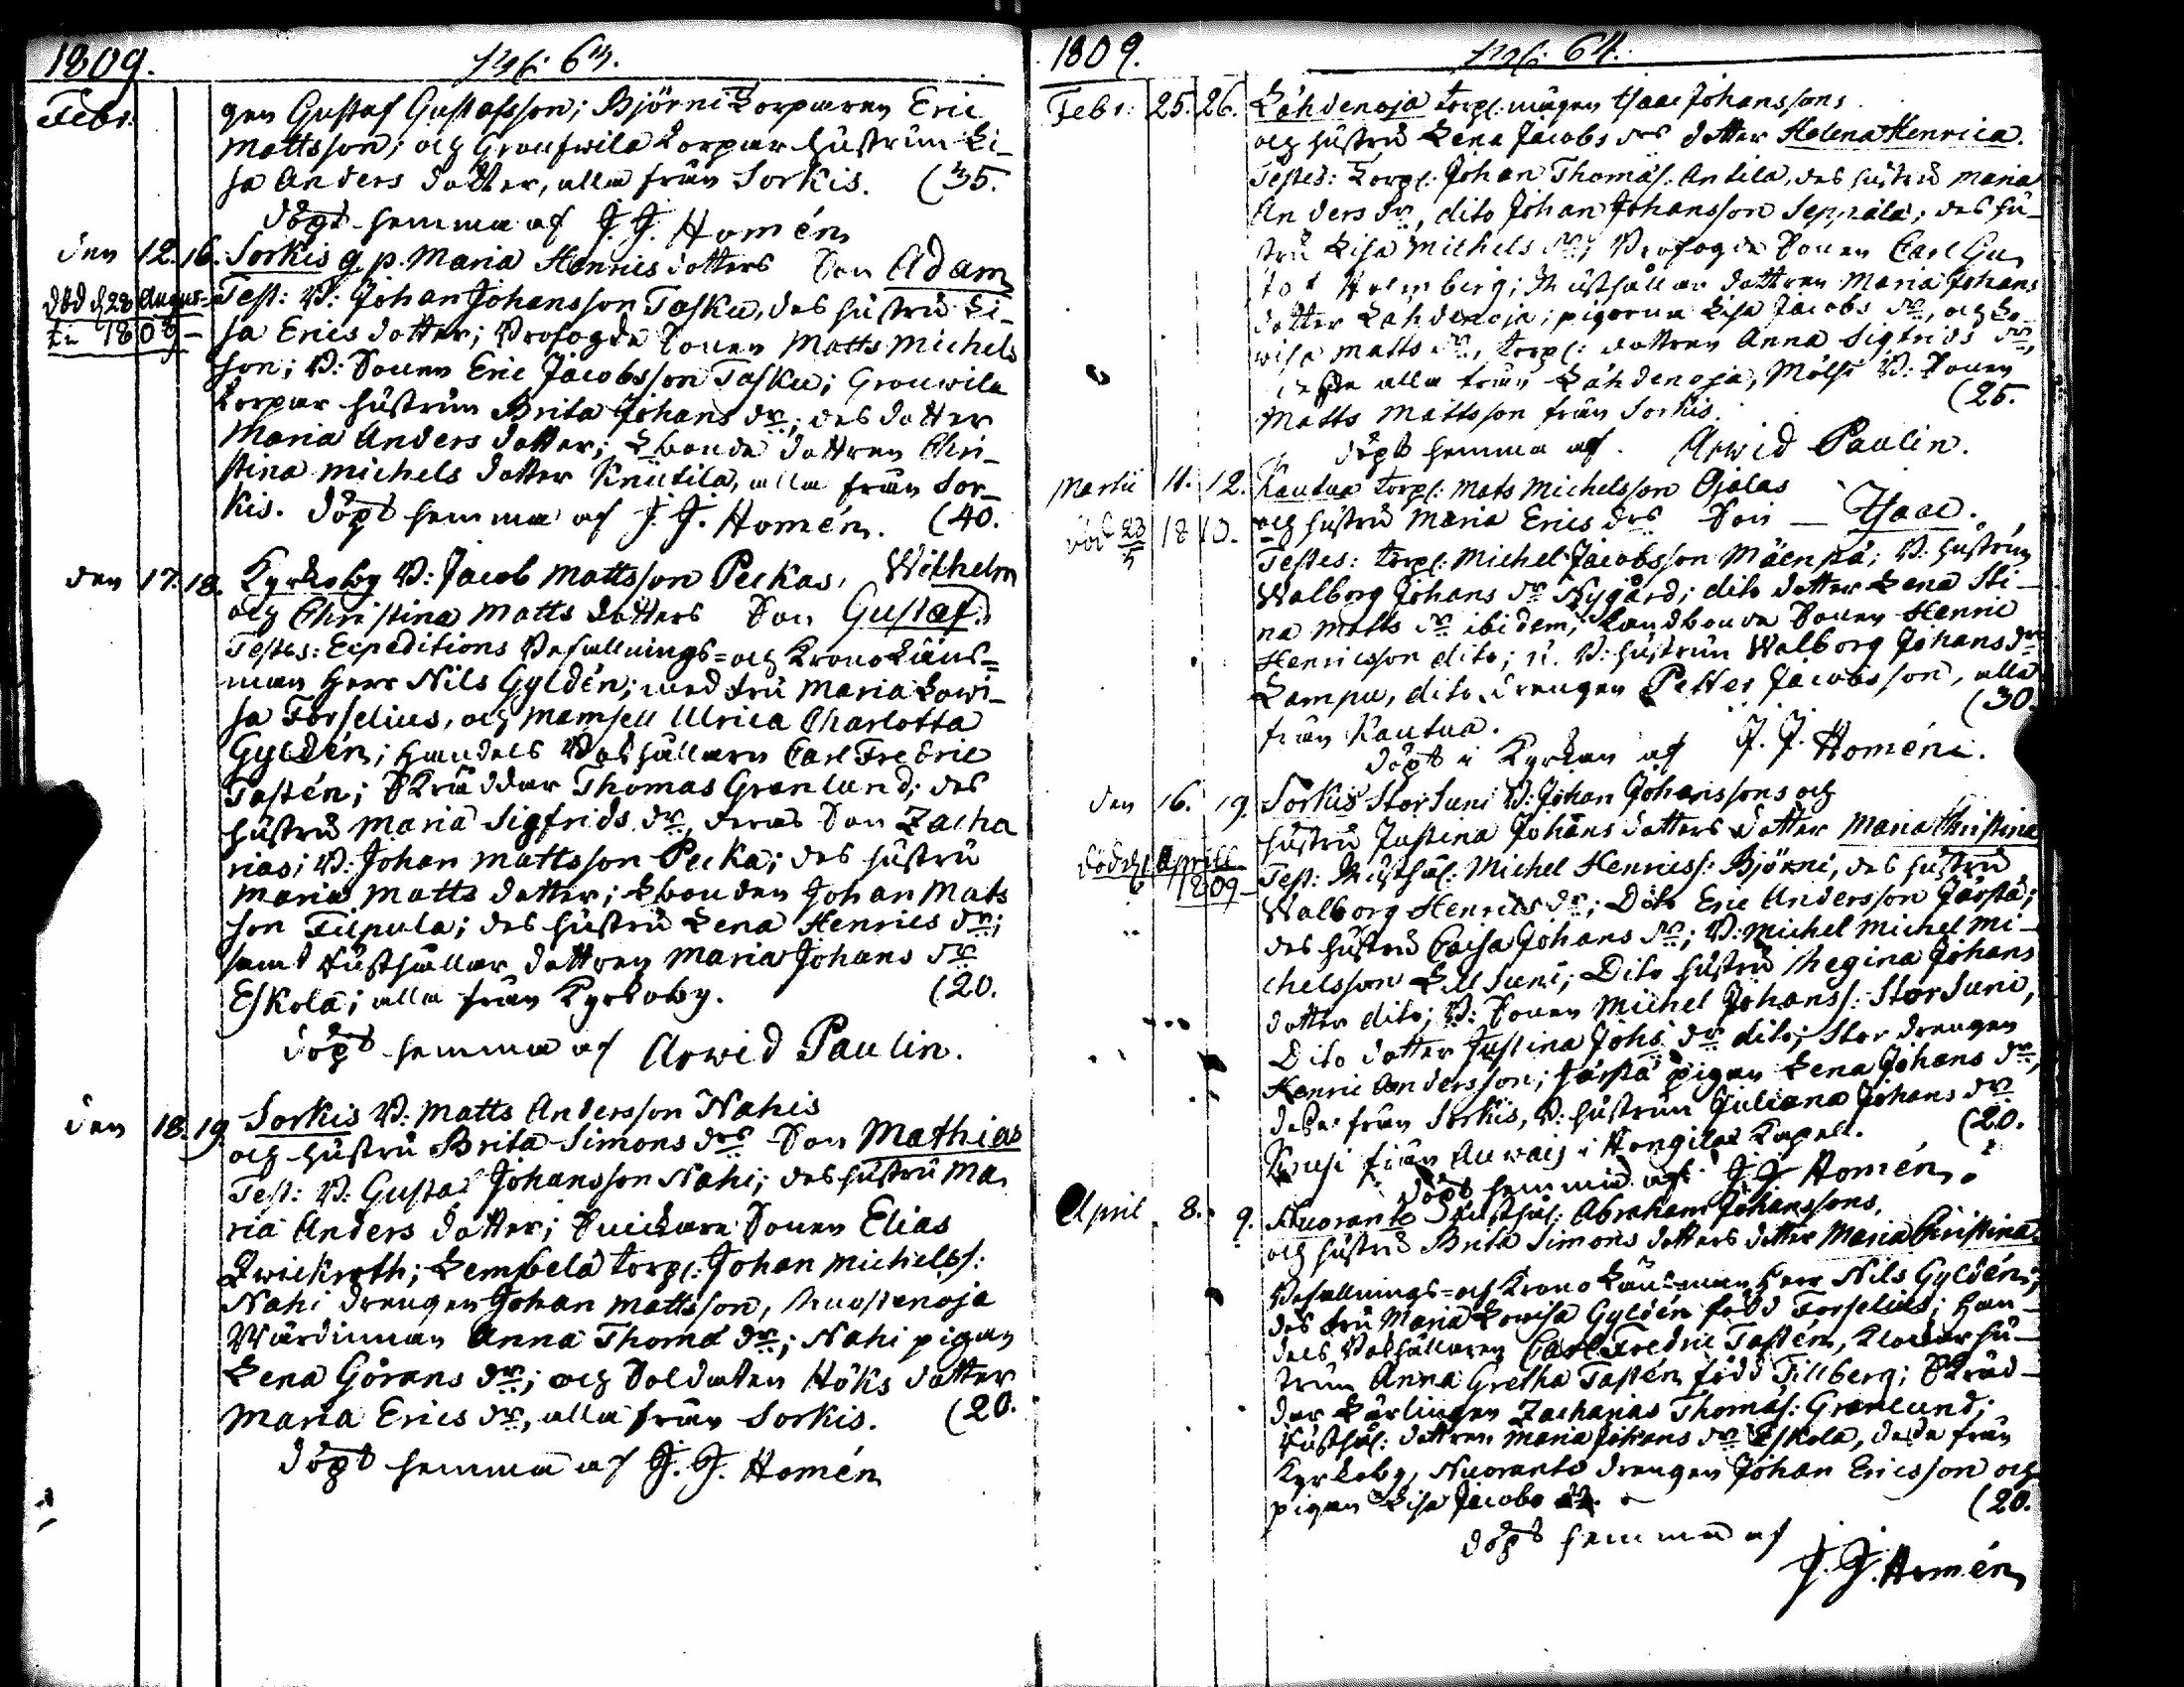 1809.
63.
Febr.
gen Gustaf Gustafsson; Björni Torparen Eric
Mattsson; och Torpar hustrun Li-
sa Anders dotter, alla från Sorkis. (35.
döpt hemma af J. J. Homén
den 12. 16. Sorkis q. p. Maria Henrics dotters Son Adam
död d 28 Augus-
ti 1809 -
Test: B: Johan Johansson Tasku, des hustru Li-
sa Erics dotter; Profogde Sonen Matts Michels
son; B: Sonen Eric Jacobsson Tasku;
Torpar hustrun Brita Johans dr; des dotter
Maria Anders dotter; Lbonde dottren Chri-
stina Michels dotter Knuutila, alla från Sor-
kis. döpt hemma af J. J. Homén. (40.
den 17. 18. Kyrkoby B: Jacob Mattsson Peckas, Wilhelm
och Christina Matts dotters Son Gustaf.
Testes: Expeditions Befallnings= och Krono Läns=
man Herr Nils Gyldén; med fru Maria Lowi-
sa Forselius, och Mamsell Ulrica Charlotta
Gyldén; Handels Bokhållaren Carl Fredric
Tastén; Skräddar Thomas Grönlund; des
hustru Maria Sigfrids dr, deras Son Zacha
rias; B: Johan Mattsson Pecka; des hustru
Maria Matts dotter; Lbonden Johan Mats
son Filpula; des hustru Lena Henrics dr;
samt Rusthållar dottren Maria Johans dr
Eskola; alla från Kyrkoby. (20.
döpt hemma af Arwid Paulin.
den 18. 19 Sorkis B: Matts Andersson Nahis
och hustru Brita Simons drs Son Mathias
Test: B: Gustaf Johansson Nahi; des hustru Ma
ria Anders dotter; Snickare Sonen Elias
Qwickroth; Lembelä Torp: Johan Michelss:
Nahi drengen Johan Mattsson, Ruostenoja
Wärdinnan Anna Thomä dr; Nahi pigan
Lena Görans dr; och Soldaten Höks dotter
Maria Erics dr, alla från Sorkis. (20.
döpt hemma af J. J. Homén
1809.
64.
Febr: 25. 26. Lähdenoja Torp: mågen Isaac Johanssons
och hustru Lena Jacobs drs dotter Helena Henrica.
Testes: Torp: Johan Thomas: Antila, des hustru Maria
Anders dr, dito Johan Johansson Seppälä; des hu-
stru Lisa Michels dr; Profogde Sonen Carl Gu
staf Holmberg; Rusthållar dottren Maria Johans
dotter Lähdenoja; pigorna Lisa Jacobs dr, och Lo-
wisa Matts dr, Torp: dottren Anna Sigfrids dr,
desse alla från Lähdenoja, Mölsi B: Sonen
Matts Mattsson från Sorkis. (25.
döpt hemma af Arwid Paulin.
Martii 11. 12. Kautua Torp: Mats Michelsson Ojalas
död 23/5 1810.
och hustru Maria Erics drs Son - Isaac.
Testes: Torp: Michel Jacobsson Mäenpä; B: hustrun
Walborg Johans dr Nygård; dito dotter Lena Sti-
na Matts dr ibidem; Landbonde Sonen Henric
Henricsson dito; B: hustrun Walborg Johans dr
Lampu, dito drengen Petter Jacobsson, alla
från Kautua. (30.
döpt i Kyrkan af J. J. Homén.
den 16. 19. Sorkis Stor Suni B: Johan Johanssons och
hustru Justina Johans dotters dotter Maria Christina
död d April
1809
Test: Rusthål: Michel Henricss: Björni, des hustru
Walborg Henrics dr; Dito Eric Andersson Järstä;
des hustru Caisa Johans dr; B: Michel Michel Mi-
chelsson Lill Suni; Dito hustru Regina Johans
dotter dito; B: Sonen Michel Johanss: Stor Suni,
Dito dotter Justina Johs dr dito; Stor drengen
Henric Andersson; Järstä pigan Lena Johans dr,
desse från Sorkis, B: hustrun Juliana Johans dr
Knusi från Auvais i Hongilax Kapell. (20.
döpt hemma af J. J. Homén.
April 8. 9. Nuoranto Rusthål: Abraham Johanssons,
och hustru Brita Simons dotters dotter Maria Christina.
Befallnings= och Krono Länsman Herr Nils Gyldén,
des fru Maria Lowisa Gyldén född Forselius; Han-
dels Bokhållaren Carl Fredric Tastén, Klockar hu-
strun Anna Gretha Tastén född Tillberg; Skräd-
dar Lärlingen Zacharias Thomas: Grönlund;
Rusthål: dottren Maria Johans dr Eskola, desse från
Kyrkoby, Nuoranto drengen Johan Ericsson och
pigan Lisa Jacobs dr. (20.
döpt hemma af
J. J. Homén